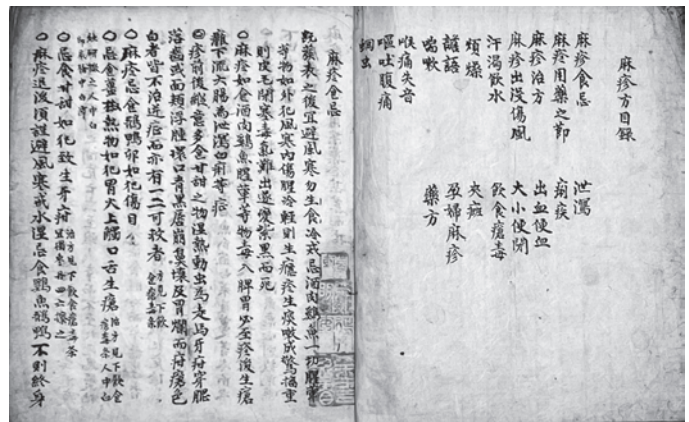 麻疹方目录
麻疹食忌
麻疹用藥之節
麻疹治方
麻疹出没傷風
汗渴飲水
煩燥
譫語
喘嗽
喉痛失音
嘔吐腹痛
蛔虫
泄瀉
痢疾
出血便血
大小便閉
飲食瘡毒
夾癍
孕婦麻疹
藥方
麻疹食忌
乾葉表之後宜避風寒勿生食冷或忌酒肉雞魚一切腥葷
等物如外犯風寒內傷腥冷輕則生癮疹生痰嗽成驚搐重
則皮毛閉塞毒氣難出遂變紫黑而死
○麻疹如食酒肉雞魚腥葷等物上毒入脾胃必至疹後生瘡
癰下流大腸為泄瀉白痢等症
○疹前後雖喜多食甘甜之物濕熱動虫為走馬牙疳穿腮
落齒或面頰浮腫環口青黑唇崩鼻壞及胃爛而疳瘡色
白者皆不治近症而亦有一二可救者
○麻疹忌食鵝鴨卵如犯傷目
○忌食薑椒熱物如犯胃火上觸口舌生瘡
○忌食甘甜如犯致生牙疳
○麻疹退後須謹避風寒戒水濕忌食雞魚鵝鴨不則終身